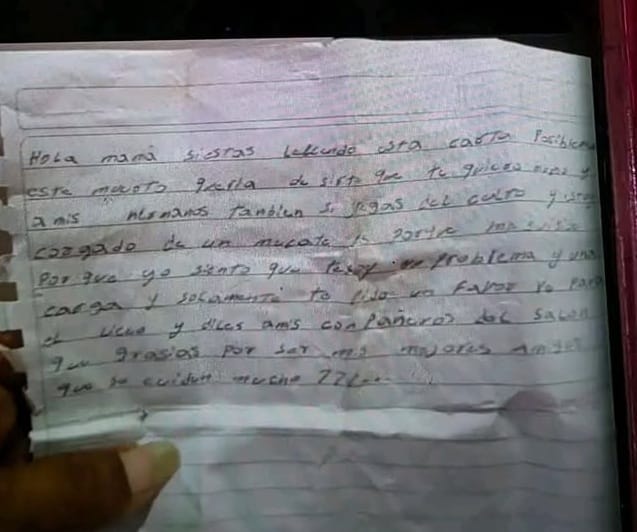 Hola mamá siestas lellendo esta carta Posiblem
este muerto queria desirte que te quiero mas y
a mis hermanos tanbien si llegas del culto y estoy
colgado de un mecate es porque
Por que yo siento que problema y una
carga y solamente te pido un favor ve para
el liceo y diles amis conpañeros del salon
que grasias por ser mis mejores amigos
que se cuiden mucho